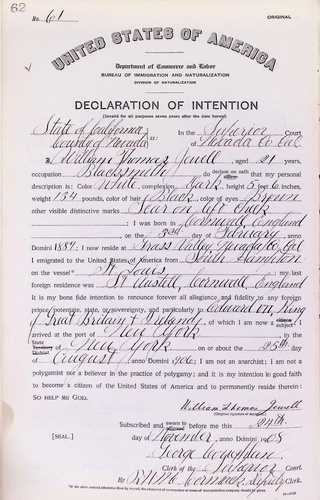 62
No. 61 ORIGINAL
UNITED STATES OF AMERICA
Department of Commerce and Labor
BUREAU OF IMMIGRATION AND NATURALIZATION
DIVISION OF NATURALIZATION
DECLARATION OF INTENTION
(Invalid for all purposes seven years after the date hereof)
State of California
County of Nevada ss: In the Superior Court
of Nevada Co Cal
I, William Thomas Jewell, aged 21 years,
occupation Blacksmith, do declare on oath that my personal
description is: Color White, complexion Dark, height 5 feet 6 inches,
weight 134 pounds, color of hair Black, color of eyes Brown
other visible distinctive marks Scar on left cheek
; I was born in Cornwall, England
, on the 3rd day of February, anno
Domini 1887; I now reside at Grass Valley Nevada Co Cal
I emigrated to the United States of America from South Hampton
on the vessel St Louis; my last
foreign residence was St Austell, Cornwall, England
It is my bona fide intention to renounce forever all allegiance and fidelity to any foreign
prince, potentate, state, or sovereignty, and particularly to Edward VII, King
of Great Britain & Ireland, of which I am now a subject; I
arrived at the port of New York, in the
State Territory District of New York on or about the 25th day
of August, anno Domini 1906; I am not an anarchist; I am not a
polygamist nor a believer in the practice of polygamy; and it is my intention in good faith
to become a citizen of the United States of America and to permanently reside therein:
SO HELP ME GOD.
William Thomas Jewell
(Original signature of declarant)
Subscribed and sworn to before me this 24th
[SEAL.] day of November, anno Domini 1908
George
Clerk of the Superior Court.
By Deputy Clerk.